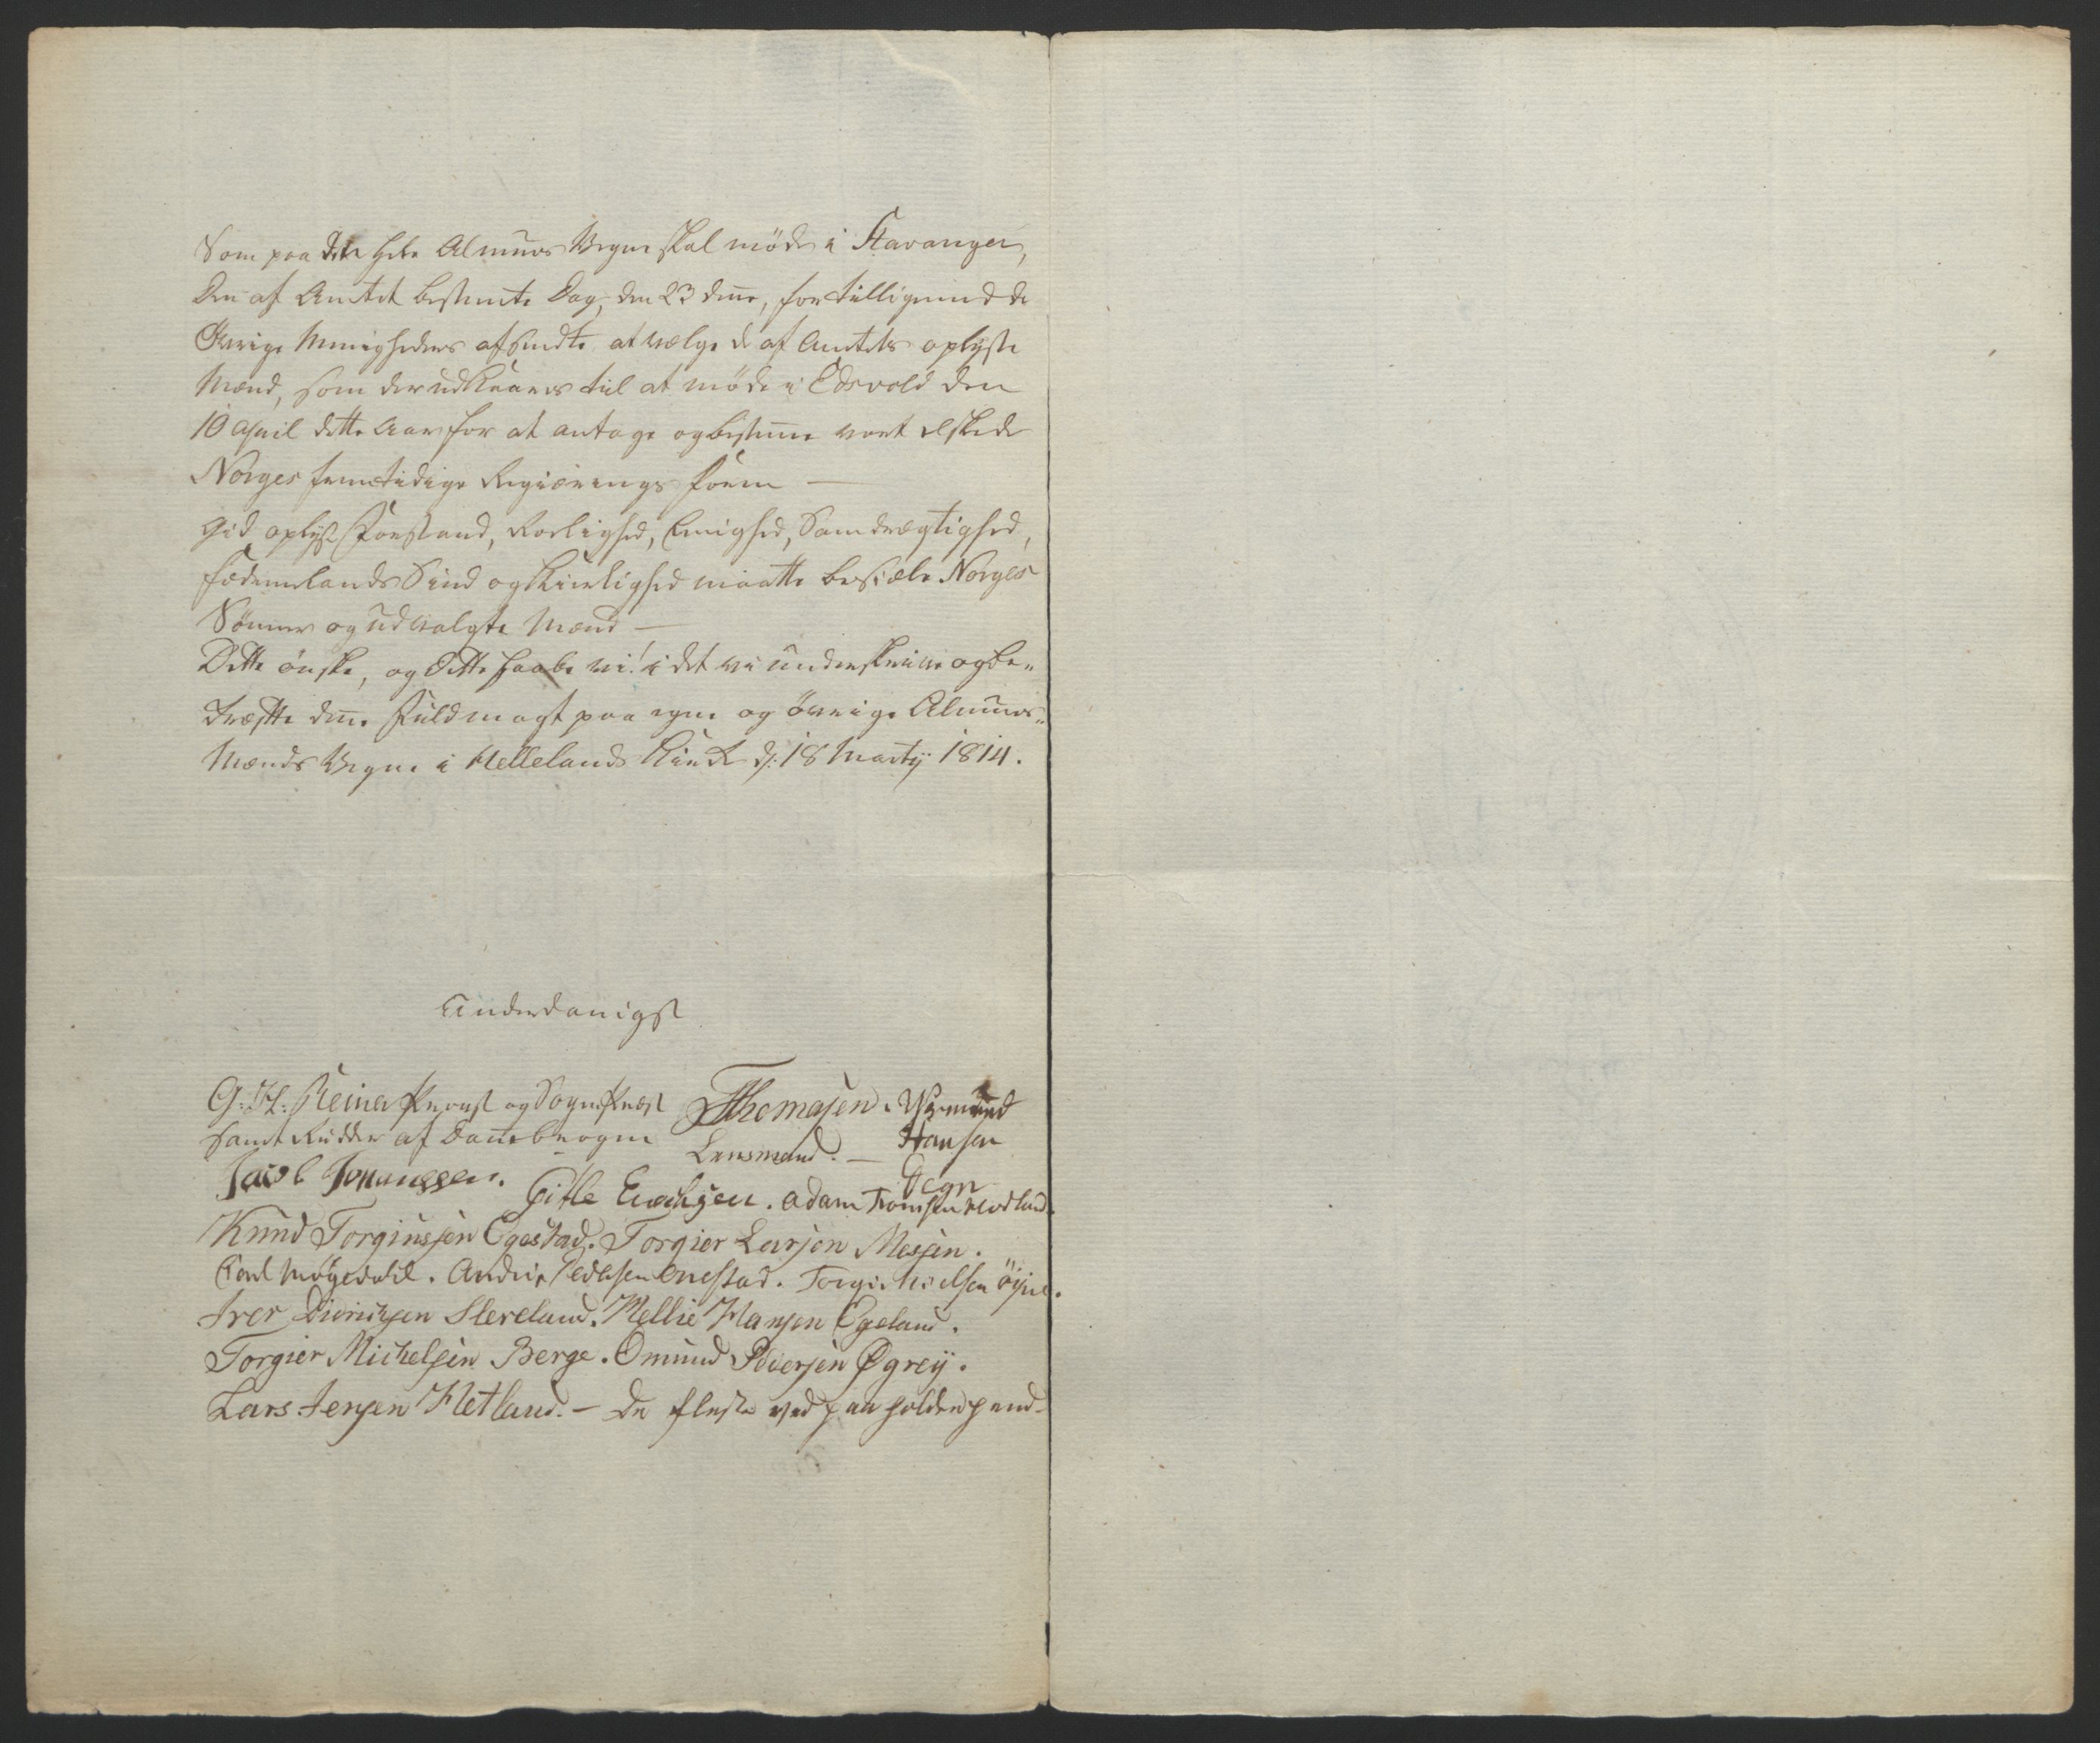 Som paa dette heele Almues Vegne skal møde i Stavanger,
den af Amtet bestemte Dag, den 23 dñe, for tilligemed de
Øvrige Menigheders afsendte at vælge de af Amtets oplyste
Mænd, som der udkaares til at møde i Edsvold den
10 April dette Aar for at antage og bestem̃e vort elskede
Norges fremtidige Regierings Form —
Gid oplyst Forstand, Roelighed, Enighed, Samdrægtighed,
Fædernelands Sind og Kierlighed maatte besiæle Norges
Sønner og udvalgte Mænd —
Dette ønske, og dette haabe vi! i det vi underskrive og be„
kræfte deñe Fuldmagt paa egne og øvrige Almues„
Mænds Vegne i Hellelands Kirke d: 18 Martij 1814.
Underdanigst
G: H: Reiner Provst og Sognepræst
samt Ridder af Dañebrogen
Thomasen.
Lensmand. —
Hansen
Degn
Jacob Jonassen.
Gitle Enochsen. Adam Hodland.
Knud Torgiussen Egestad. Torgier Larsen Messen.
Carl Møgedahl. Andrie Onestad. Torgie Nielsen
Iver Divrichsen Sleveland. Mellie Hansen Egeland.
Torgier Michelsen Berge. Omund Øgreÿ.
Lars Jensen Hetland. — De fleste ved paaholden Pend